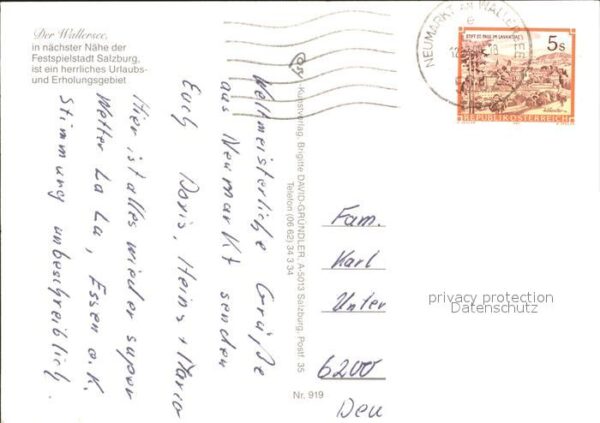 Der Wallersee,
in nächster Nähe der
Festspielstadt Salzburg,
ist ein herrliches Urlaubs-
und Erholungsgebiet
Weltmeisterliche Grüße
aus Neumarkt senden
Euch Doris, Heinz + Marco
Hier ist alles wieder super
Wetter La La, Essen o.K.
Stimmung unbeschreiblich.
-Kunstverlag, Brigitte DAVID-GRÜNDLER, A-5013 Salzburg, Postf. 35
Telefon (06 62) 34 3 34
NEUMARKT AM WALLERSEE
STIFT ST. PAUL IM LAVANTTAL
5 S
REPUBLIK ÖSTERREICH
Fam.
Karl
Unter
6200
Deu
privacy protection
Datenschutz
Nr. 919